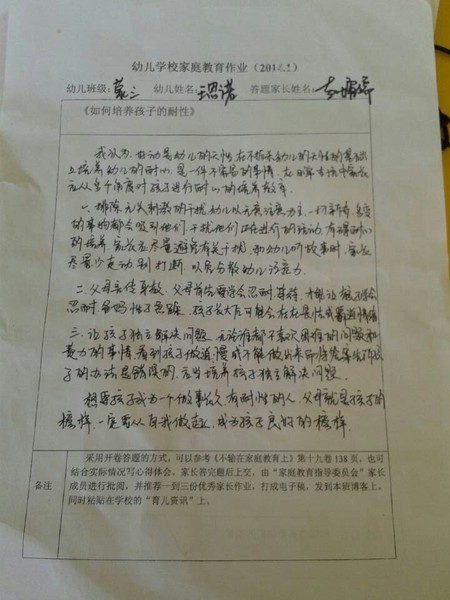 幼儿学校家庭教育作业（2014.1）
幼儿班级：蒙二 幼儿姓名：王恩诺 答题家长姓名：
《如何培养孩子的耐性》
我认为，好动是幼儿的天性，在不损坏幼儿的天性的基础
上培养幼儿的耐心，是一件不容易的事情，在日常生活中家长
可从多个角度对孩子进行耐心的培养教育。
一、排除无关刺激的干扰，幼儿以无意注意为主，一切新奇、多变
的事物都会吸引他们，干扰他们正在进行的活动，有碍耐心
的培养，家长应尽量避免有关干扰，和幼儿听故事时，家长
尽量少走动，别打断，以免分散幼儿注意力。
二、父母言传身教，父母首先要学会忍耐、等待，才能让孩子学会
忍耐，爸妈性子急躁，孩子长大后可能会存在急性或霸道情绪
三、让孩子独立解决问题，无论谁都不喜欢困难的问题和
费力的事情，看到孩子做道慢或不能做出来而
子的办法是错误的，应当培养孩子独立解决问题。
想要孩子成为一个做事长久、有耐性的人，父母就是孩子的
榜样，一定要从自我做起，成为孩子良好的榜样。
备注
采用开卷答题的方式，可以参考《不输在家庭教育上》第十九卷 138 页，也可
结合实际情况写心得体会。家长答完题后上交，由“家庭教育指导委员会”家长
成员进行批阅，并推荐一到三份优秀家长作业，打成电子稿，发到本班博客上，
同时粘贴在学校的“育儿资讯”上。